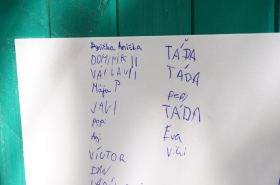 Anička
DOMINIK
VÁCLAV
Mája P
JAVI
pepi
Anj
VÍCTOR
DAN
TAĎA
TÁĎA
pepi
TÁĎA
Eva
Viki